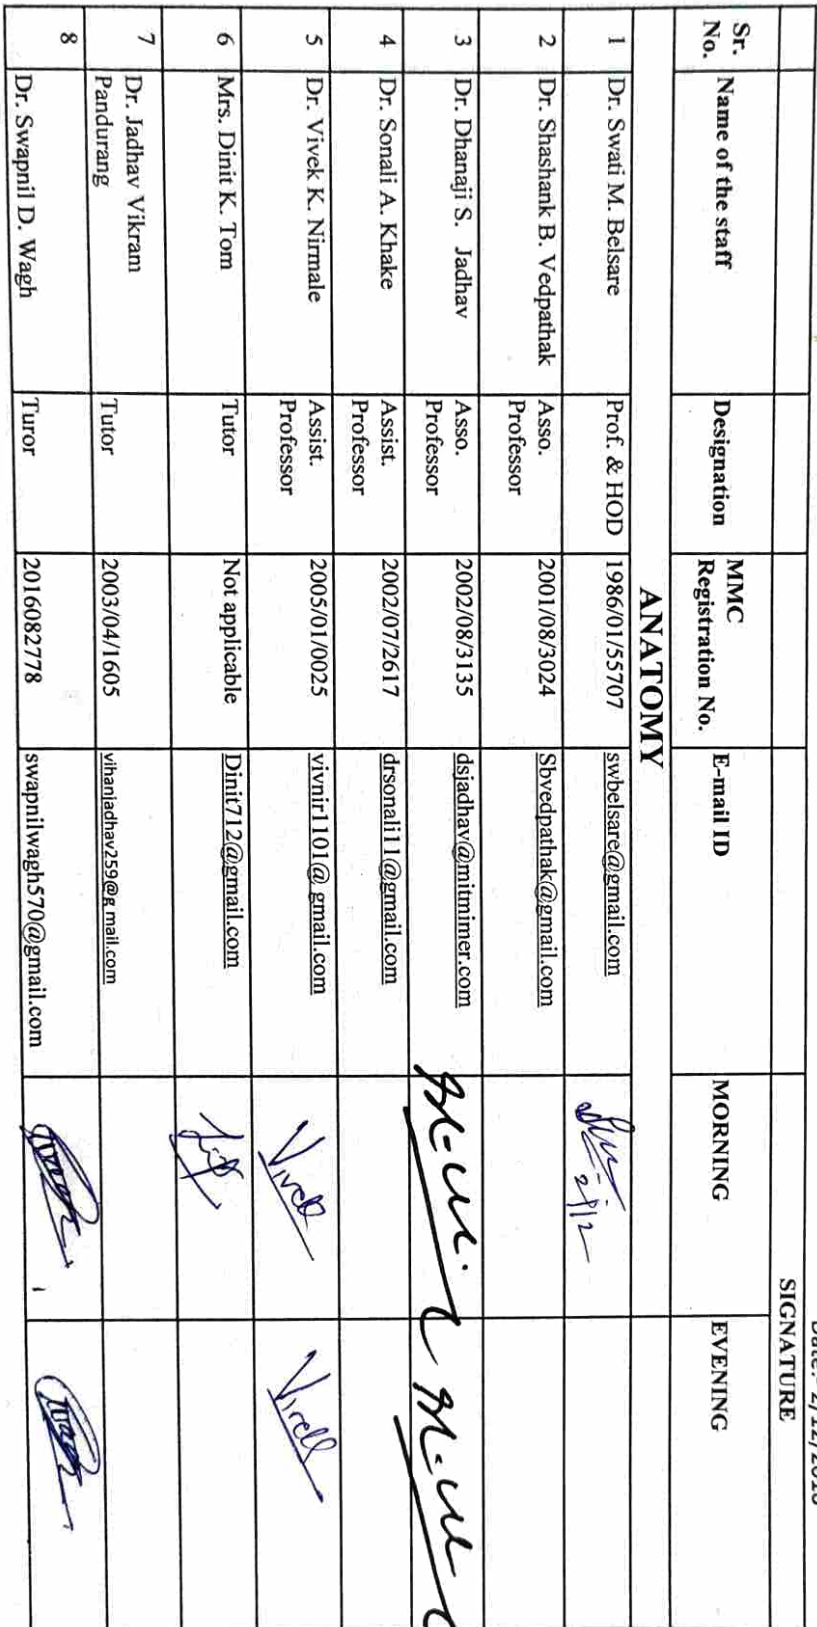 SIGNATURE
Sr. No. Name of the staff Designation MMC Registration No. E-mail ID MORNING EVENING
ANATOMY
1 Dr. Swati M. Belsare Prof. & HOD 1986/01/55707 swbelsare@gmail.com
2 Dr. Shashank B. Vedpathak Asso. Professor 2001/08/3024 Sbvedpathak@gmail.com
3 Dr. Dhanaji S. Jadhav Asso. Professor 2002/08/3135 dsjadhav@mitmimer.com
4 Dr. Sonali A. Khake Assist. Professor 2002/07/2617 drsonali11@gmail.com
5 Dr. Vivek K. Nirmale Assist. Professor 2005/01/0025 vivnir1101@ gmail.com
6 Mrs. Dinit K. Tom Tutor Not applicable Dinit712@gmail.com
7 Dr. Jadhav Vikram Pandurang Tutor 2003/04/1605 vihanjadhav259@g mail.com
8 Dr. Swapnil D. Wagh Turor 2016082778 swapnilwagh570@gmail.com